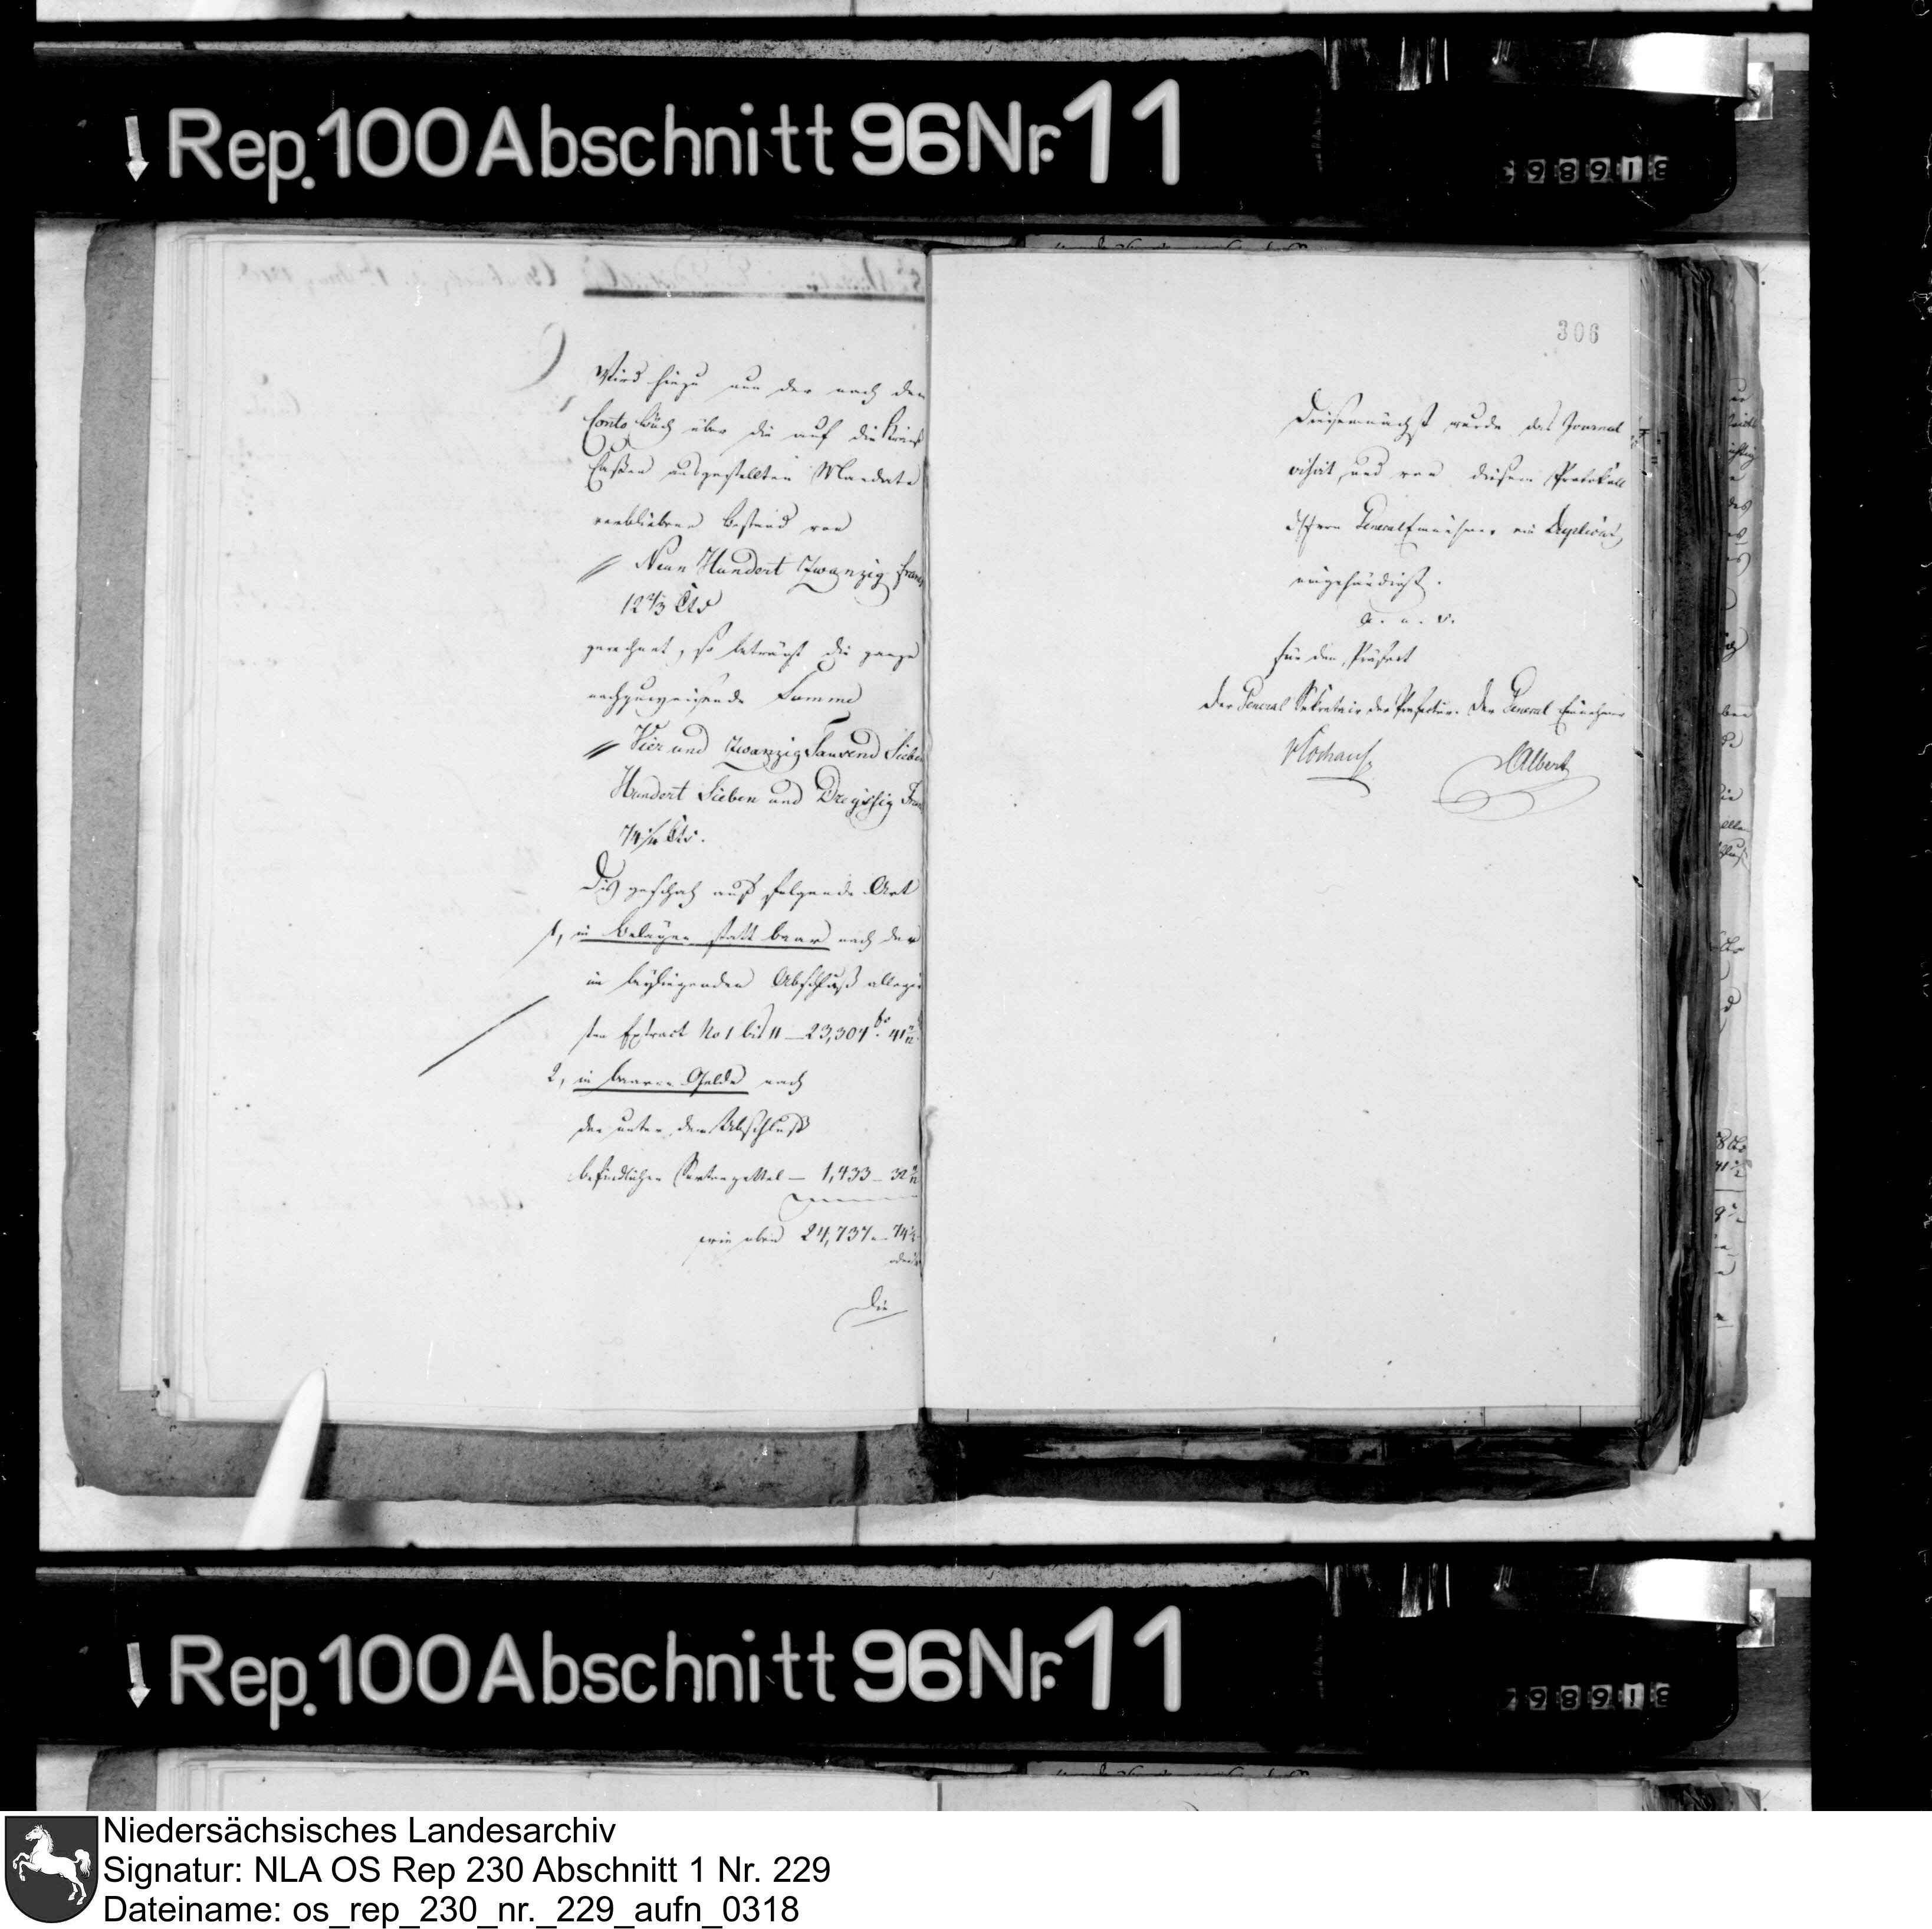 Rep. 100 Abschnitt 96 Nr. 11
Wird hinzu nun der nach dem
Conto Buch über die auf die Kreis
Cassen ausgestellten Mandate
verbliebene Bestand von
Neun Hundert Zwanzig Francs
12 2/3 Cts
gerechnet, so beträgt die ganze
nachzuweisende Summe
Vier und Zwanzig Tausend Sieben
Hundert Sieben und Dreyssig
74 Cts.
Dis geschah auf folgende Art
1, in Belägen statt baar nach den
im beyliegenden Abschluß
Extract No 1 bis 11 — 23,304 fr. 41
2, in baarem Gelde nach
der unter dem Abschluß
befindlichen Sortenzettel — 1,433 — 32
wie oben 24,737 — 74
Die
306
Diesemnächst wurde das Journal
visirt, und von diesem Protokoll
dem General Einnehmer ein Duplicat
eingehändigt.
a. u. s.
für den Präfect
Der General Sekretair der Präfectur. Der General Einnehmer
Albert
Rep. 100 Abschnitt 96 Nr. 11
Niedersächsisches Landesarchiv
Signatur: NLA OS Rep 230 Abschnitt 1 Nr. 229
Dateiname: os_rep_230_nr._229_aufn_0318